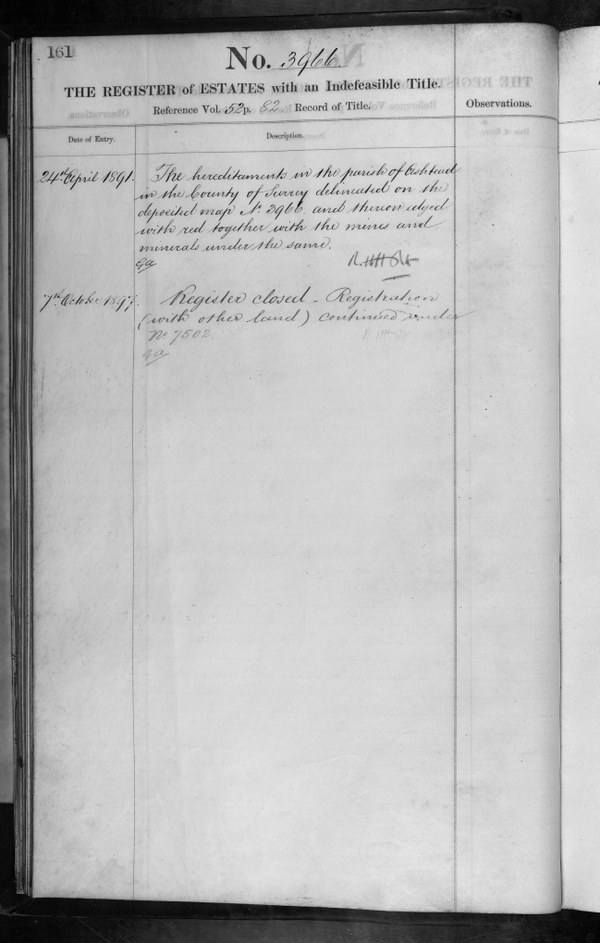 161
No. 3966.
THE REGISTER of ESTATES with an Indefeasible Title.
Reference Vol. 52 p. 82 Record of Title.
Observations.
Date of Entry.
Description.
24th April 1891.
The hereditaments in the parish of Ashtead
in the County of Surrey delineated on the
deposited map No. 3966 and thereon edged
with red together with the mines and
minerals under the same.
7th October 1897.
Register closed - Registration
(with other land) continued under
No 7502.